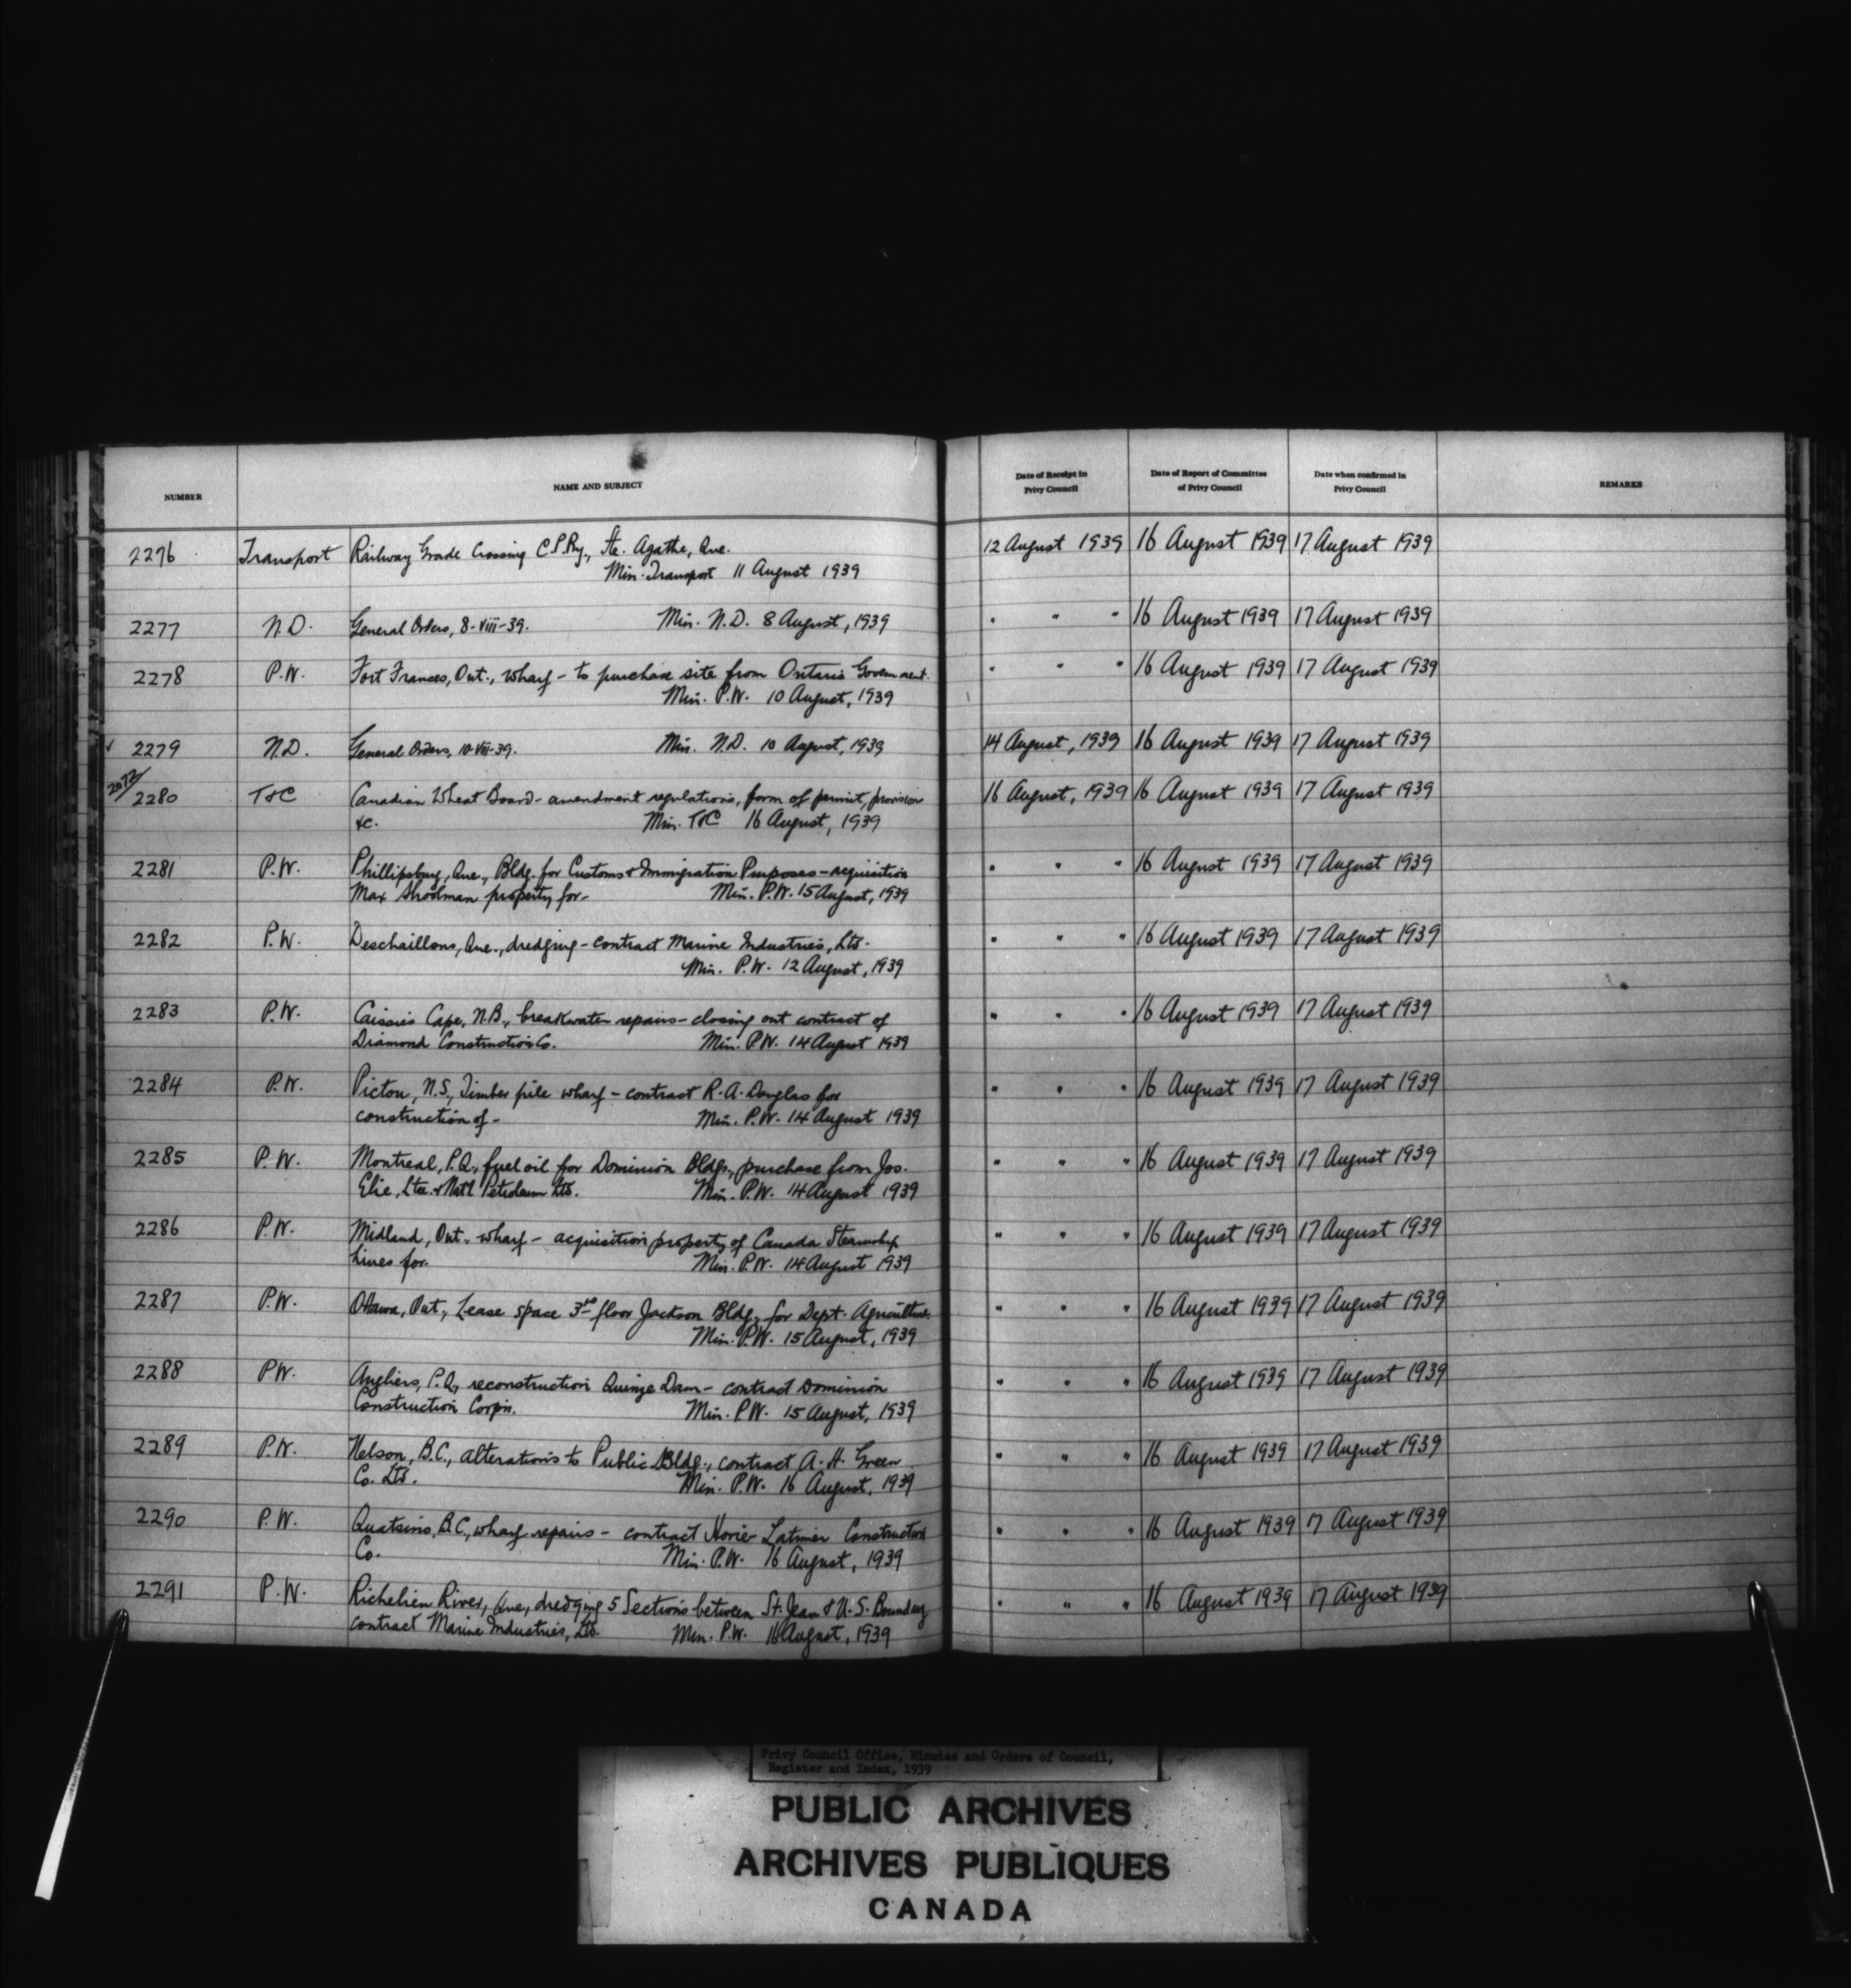 NUMBER NAME AND SUBJECT Date of Receipt in Privy Council Date of Report of Committee of Privy Council Date when confirmed in Privy Council REMARKS
2276 Transport Railway Grade Crossing C.P.Ry., Ste. Agathe, Que. 12 August 1939 16 August 1939 17 August 1939
Min. Transport 11 August 1939
2277 N.D. General Orders, 8-VIII-39. Min. N.D. 8 August, 1939 " " " 16 August 1939 17 August 1939
2278 P.W. Fort Frances, Ont., wharf - to purchase site from Ontario Government. " " " 16 August 1939 17 August 1939
Min. P.W. 10 August, 1939
✓ 2279 N.D. General Orders, 10-VIII-39. Min. N.D. 10 August, 1939 14 August, 1939 16 August 1939 17 August 1939
2072/
2280 T&C Canadian Wheat Board - amendment regulations, form of permit, provision 16 August, 1939 16 August 1939 17 August 1939
&c. Min. T&C 16 August, 1939
2281 P.W. Phillipsburg, Que., Bldg. for Customs & Immigration Purposes - acquisition " " " 16 August 1939 17 August 1939
Max Shodman property for - Min. P.W. 15 August, 1939
2282 P.W. Deschaillons, Que., dredging - contract Marine Industries, Ltd. " " " 16 August 1939 17 August 1939
Min. P.W. 12 August, 1939
2283 P.W. Caissies Cape, N.B., breakwater repairs - closing out contract of " " " 16 August 1939 17 August 1939
Diamond Construction Co. Min. P.W. 14 August 1939
2284 P.W. Pictou, N.S., Timber pile wharf - contract R.A. Douglas for " " " 16 August 1939 17 August 1939
construction of - Min. P.W. 14 August 1939
2285 P.W. Montreal, P.Q., fuel oil for Dominion Bldgs., purchase from Jos. " " " 16 August 1939 17 August 1939
Elie, Ltee. & Nat'l Petroleum Ltd. Min. P.W. 14 August 1939
2286 P.W. Midland, Ont., wharf - acquisition property of Canada Steamship " " " 16 August 1939 17 August 1939
Lines for. Min. P.W. 14 August 1939
2287 P.W. Ottawa, Ont., Lease space 3rd floor Jackson Bldg. for Dept. Agriculture. " " " 16 August 1939 17 August 1939
Min. P.W. 15 August, 1939
2288 P.W. Angliers, P.Q., reconstruction Quinze Dam - contract Dominion " " " 16 August 1939 17 August 1939
Construction Corp'n. Min. P.W. 15 August, 1939
2289 P.W. Nelson, B.C., alterations to Public Bldg., contract A.H. Green " " " 16 August 1939 17 August 1939
Co. Ltd. Min. P.W. 16 August, 1939
2290 P.W. Quatsino, B.C., wharf repairs - contract Horie- Latimer Construction " " " 16 August 1939 17 August 1939
Co. Min. P.W. 16 August, 1939
2291 P.W. Richelieu River, Que, dredging 5 Sections between St. Jean & U.S. Boundary " " " 16 August 1939 17 August 1939
contract Marine Industries, Ltd. Min. P.W. 16 August, 1939
Privy Council Office, Minutes and Orders of Council,
Register and Index, 1939
PUBLIC ARCHIVES
ARCHIVES PUBLIQUES
CANADA